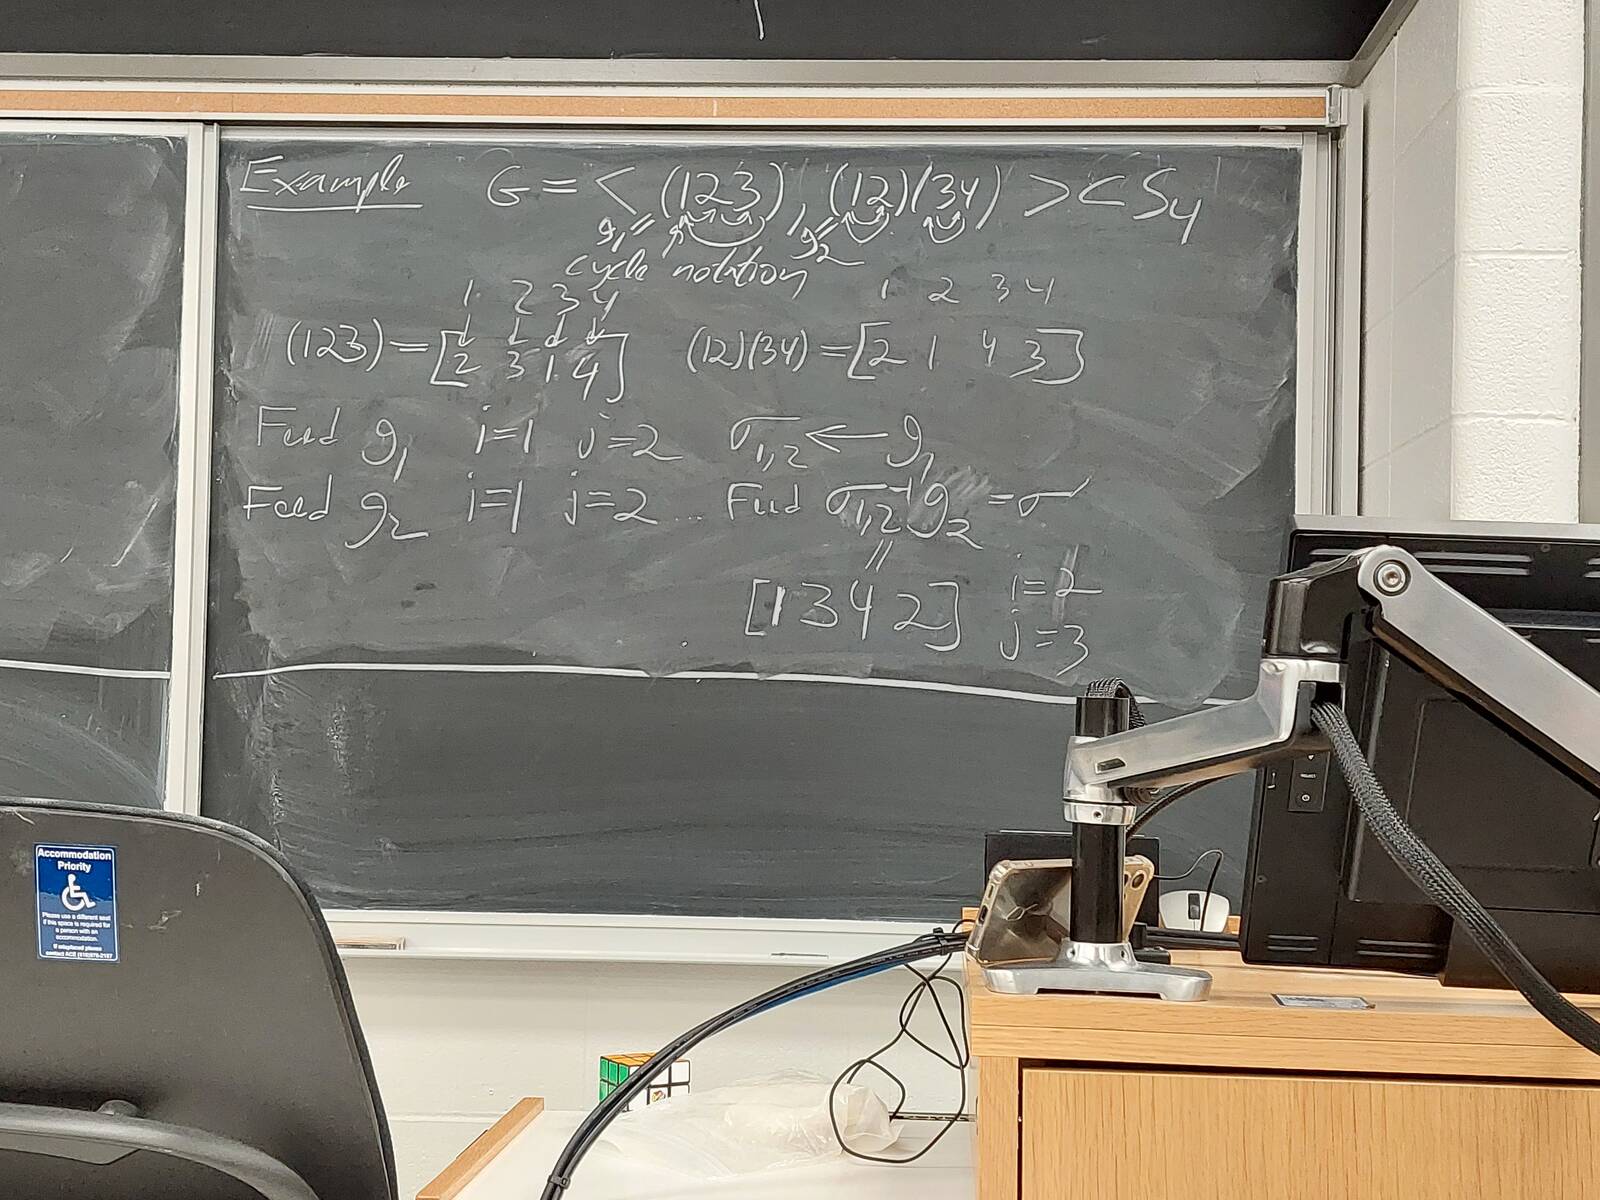 Example G = < (123), (12)(34) > < S₄
g₁= g₂=
cycle notation
1 2 3 4 1 2 3 4
(123) = [2 3 1 4] (12)(34) = [2 1 4 3]
Feed g₁ i=1 j=2 σ₁,₂ ← g₁
Feed g₂ i=1 j=2 ... Feed σ₁,₂⁻¹g₂ = σ
[1 3 4 2] i=2
j=3
Accommodation
Priority
Please use a different seat
if this space is required for
a person with an
accommodation.
If misplaced please